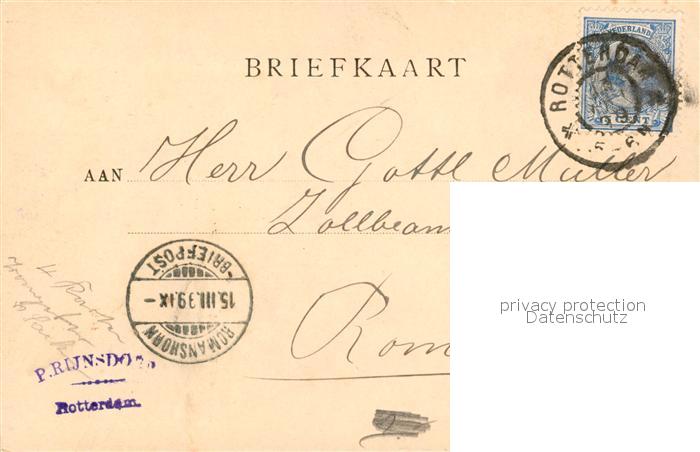 NEDERLAND
ROTTERDAM
BRIEFKAART
AAN Herr Gottl Müller
Zollbeam
Rom
BRIEFPOST
15.III.99.IX-
ROMANSHORN
P. RIJNSDO
Rotterdam.
privacy protection
Datenschutz